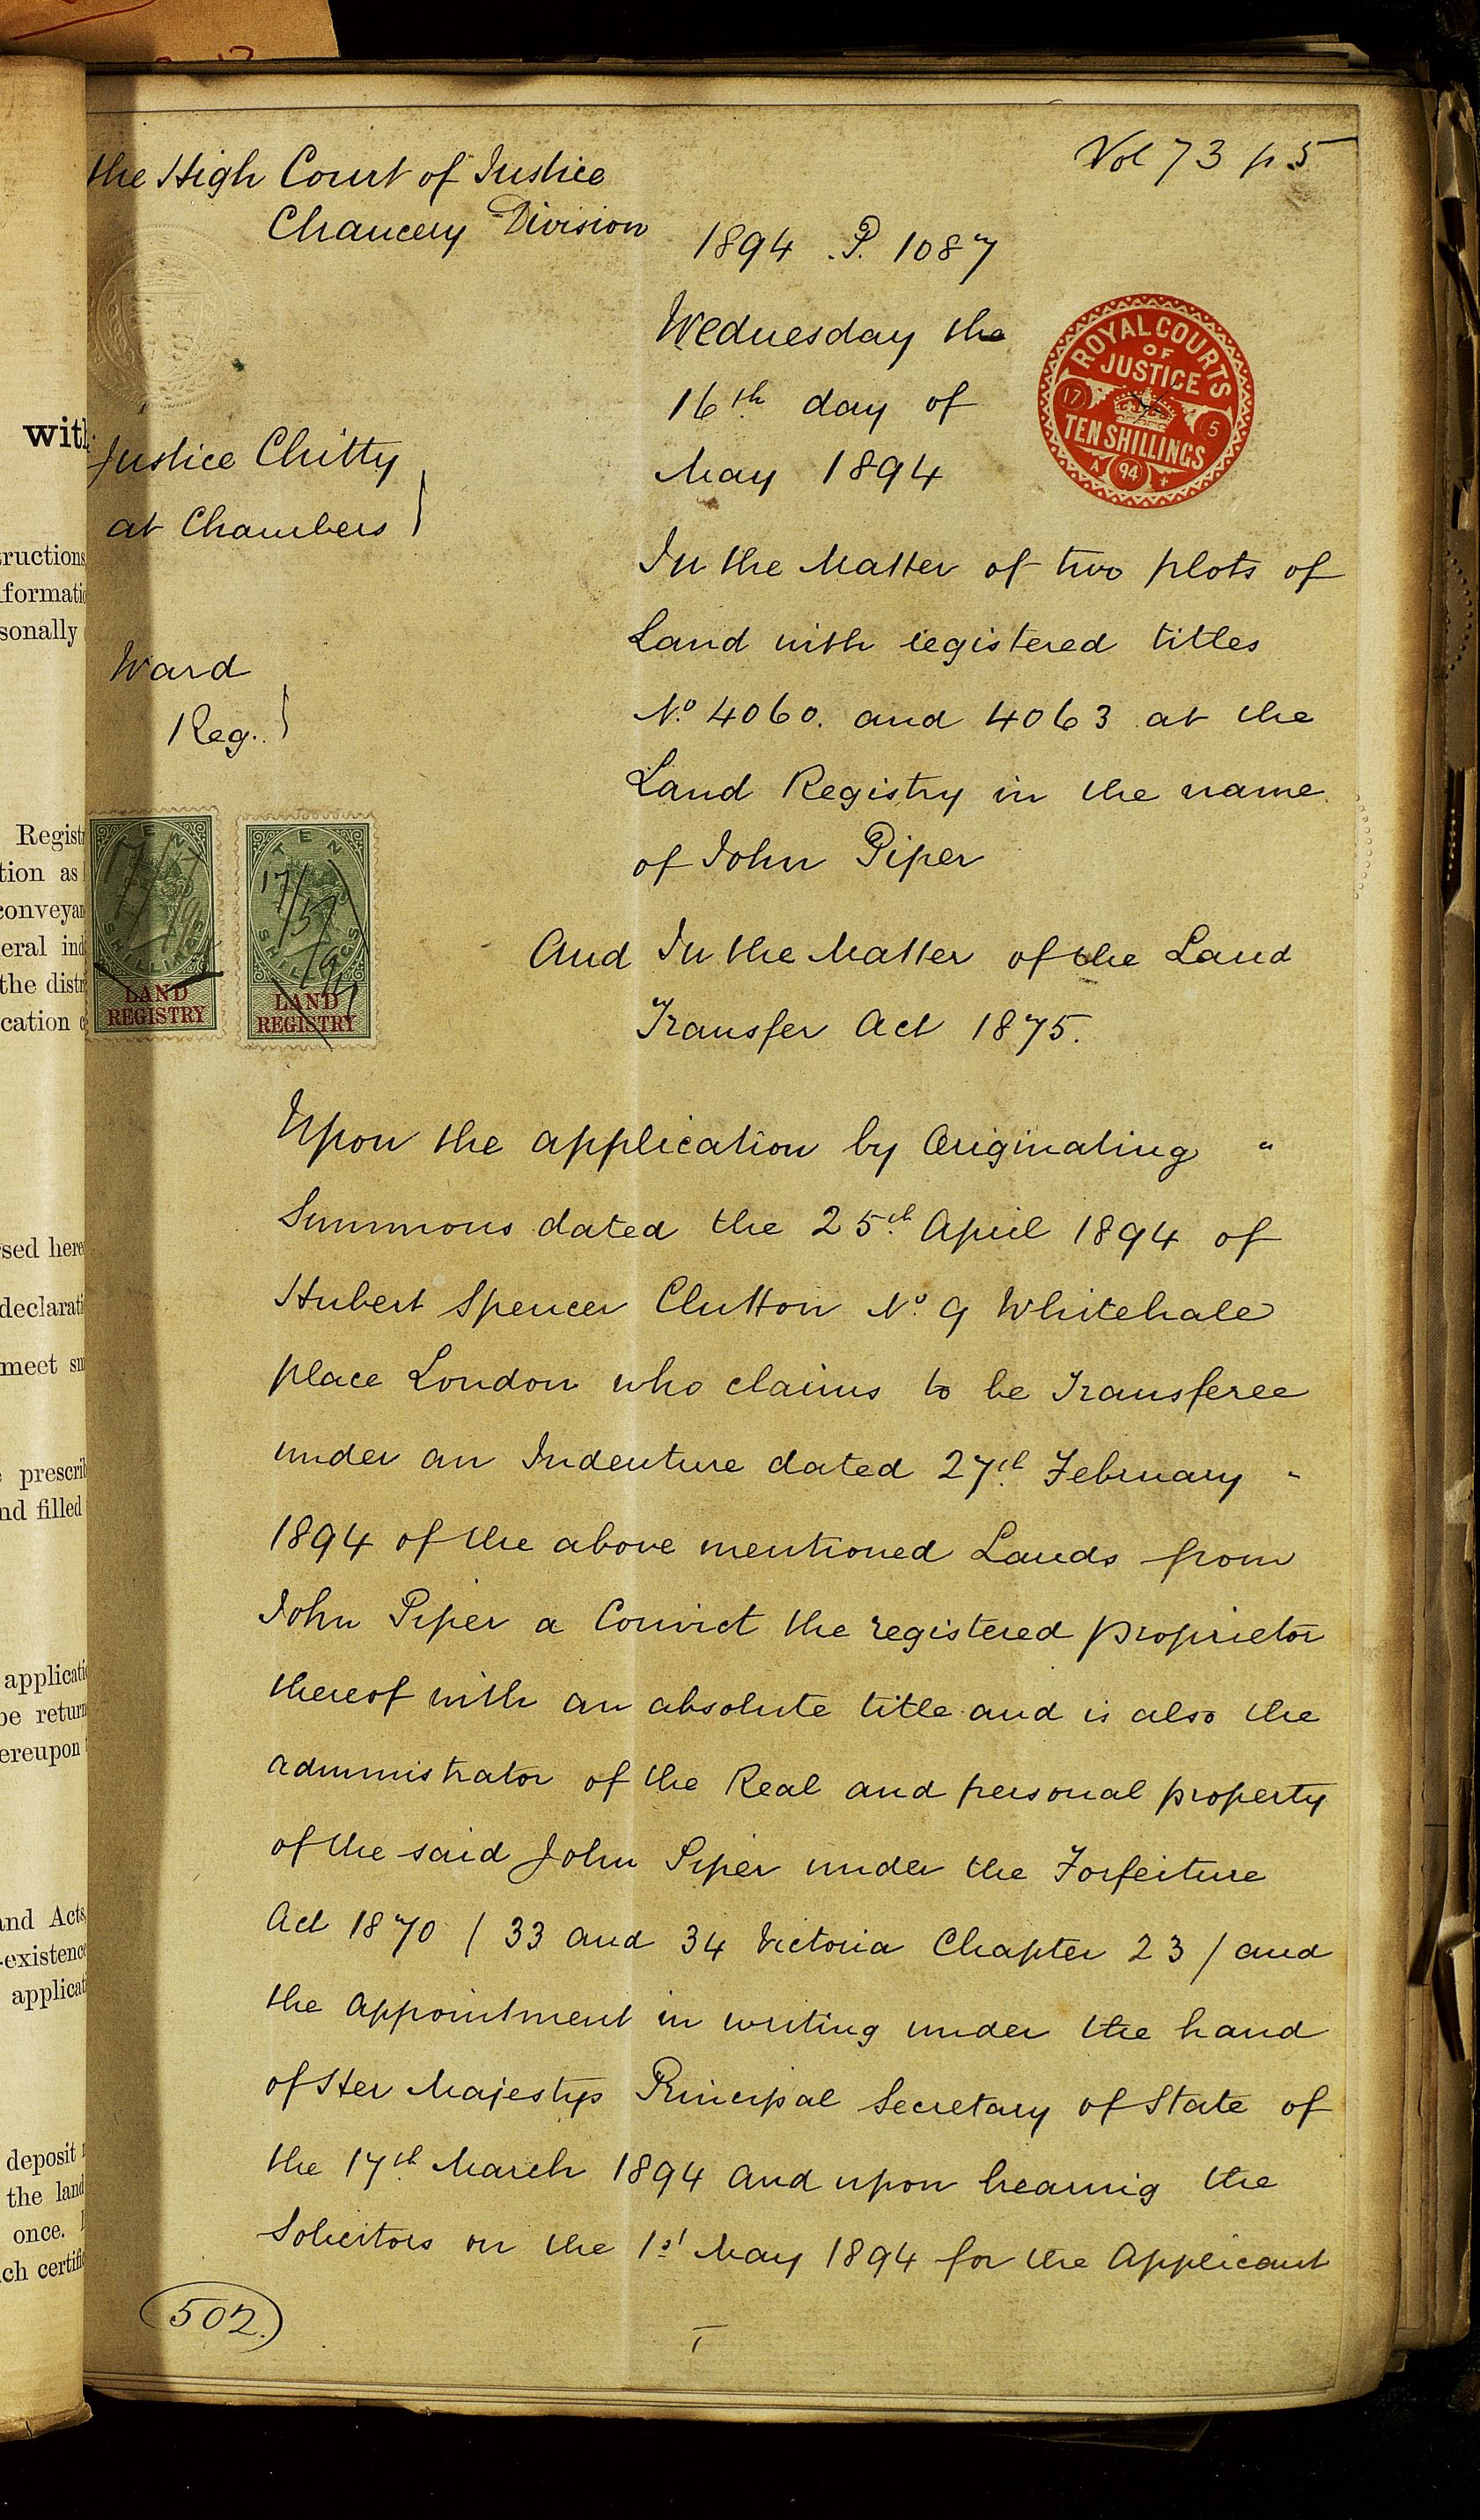 Vol 73 p 5
the High Court of Justice
Chancery Division
1894 .P. 1087
Wednesday the
16th day of
May 1894
ROYAL COURTS
OF
JUSTICE
17
5
TEN SHILLINGS
A 94 +
Justice Chitty
at Chambers
Ward
Reg.
In the Matter of two plots of
Land with registered titles
No. 4060. and 4063 at the
Land Registry in the name
of John Piper
TEN
SHILLINGS
LAND
REGISTRY
TEN
17/5/94
SHILLINGS
LAND
REGISTRY
And In the Matter of the Land
Transfer Act 1875.
Upon the application by Originating "
Summons dated the 25th April 1894 of
Hubert Spencer Clutton No. 9 Whitehale
place London who claims to be Transferee
under an Indenture dated 27th February "
1894 of the above mentioned Lands from
John Piper a Convict the registered proprietor
thereof with an absolute title and is also the
administrator of the Real and personal property
of the said John Piper under the Forfeiture
Act 1870 / 33 and 34 Victoria Chapter 23 / and
the Appointment in writing under the hand
of Her Majestys Principal Secretary of State of
the 17th March 1894 and upon hearing the
Solicitors on the 1st May 1894 for the Applicant
502.
with
tructions
formatio
sonally
Regist
tion as
conveyan
eral ind
the distr
cation
rsed here
declarati
meet su
prescrib
nd filled
applicati
be return
ereupon
and Acts
-existence
applicat
deposit
the land
once.
ch certifi